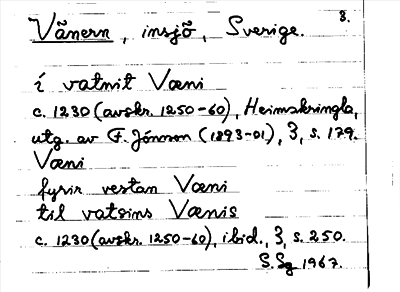 8.
Vänern, insjö, Sverige.
í vatnit Væni
c. 1230 (avskr. 1250-60), Heimskringla,
utg. av F. Jónsson (1893-01), 3, s. 179.
Væni
fyrir vestan Væni
til vatsins Vænis
c. 1230 (avskr. 1250-60), ibid., 3, s. 250.
S.Sg 1967.